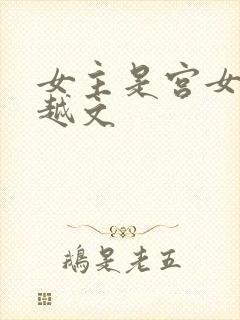 女主是宫女
越文
鹅是老五